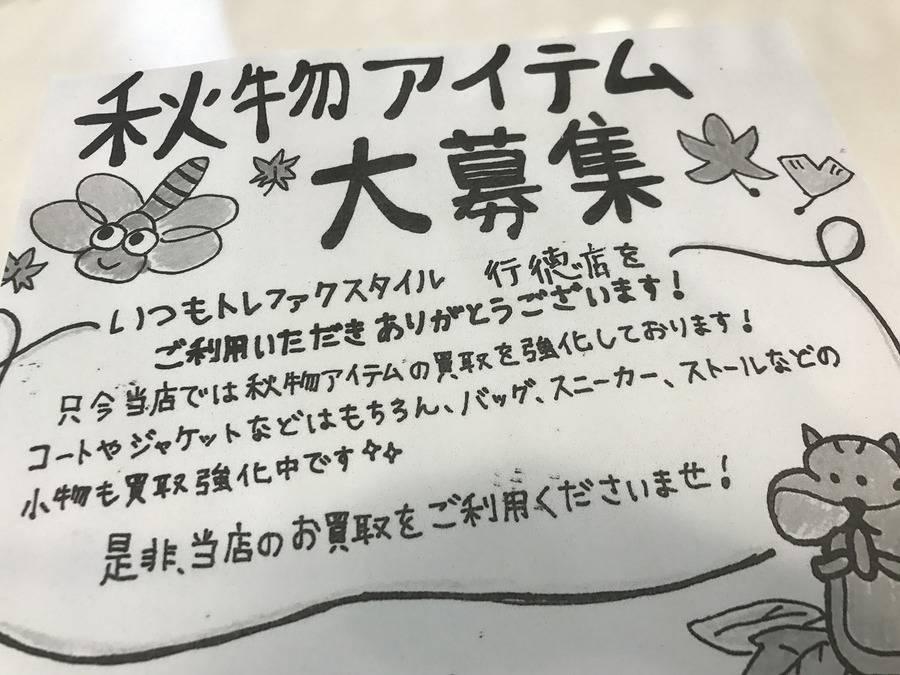 秋物アイテム
大募集
いつもトレファクスタイル 行徳店を
ご利用いただきありがとうございます!
只今当店では秋物アイテムの買取を強化しております!
コートやジャケットなどはもちろん、バッグ、スニーカー、ストールなどの
小物も買取強化中です✧✧
是非、当店のお買取をご利用くださいませ!